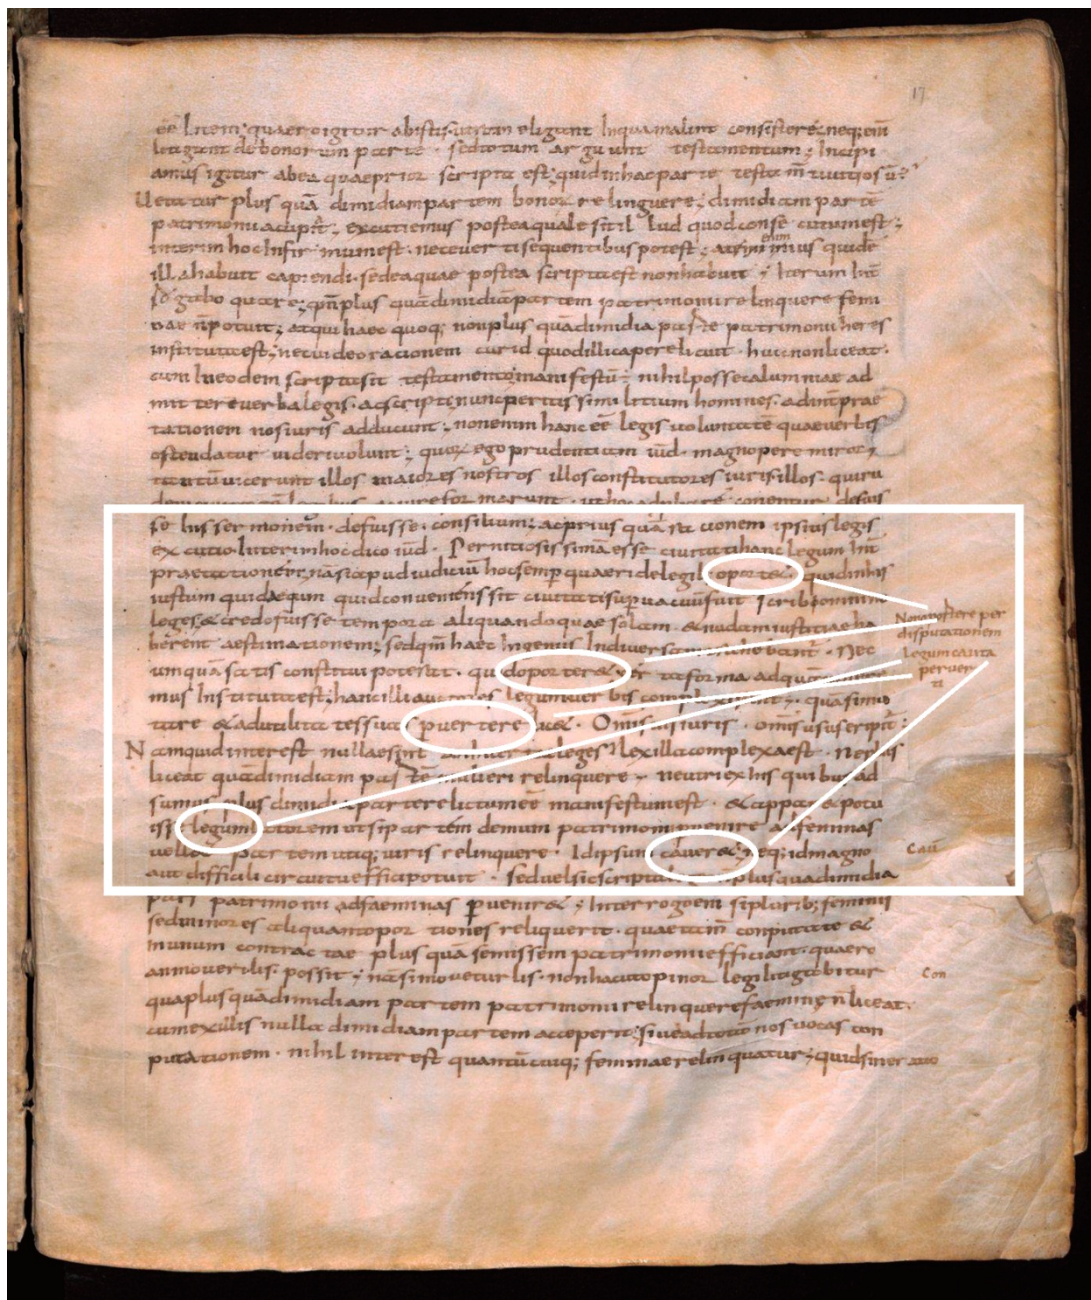 17
ee litem; quaeroigitur abistis utrum eligant Inqua malint consistere; neq; enī
litigant de bonorum parte · sed totum arguunt testamentum; Incipi
amus igitur abea quae prior scripta est; quid inhac parte testam̄ti uitiosū?
Uetatur plus quā dimidiam partem bonoꝝ relinquere; dimidiam partē
patrimonii accipit; excutiemus postea quale sit illud quod consecutum est;
interim hoc Infirmum est · nec everti sequentibus potest;
illa habuit capiendi · sed ea quae postea scripta est non habuit; Iterum Int
quare; plus quā dimidiā partem patrimonii relinquere femi
nae n̄ potuit; atqui haec quoq; non plus quā dimidia parte patrimonii heres
instituta est; nec uideo racionem cur id quod illi capere licuit · huic non liceat ·
cum Ineodem scripta sit testamento; manifestū; nihil posse alumnae ad
mittere verba legis · ac scripti; nunc peritissimi litium homines · ad int̄prae
tationem nos iuris adducunt; non enim hanc eē legis uoluntatē quae verbis
ostendatur uideri uolunt; quoꝝ ego prudentiam iūd · magnopere miror;
illos maiores nostros illos constitutores iuris illos · quiru
formarunt ·
se Iis sermonem · defuisse · consilium; ac prius quā racionem ipsius legis
excutio Interim hoc dico iūd · Pernitiosissimā esse ciuitati hanc legum Int̄
praetationem; nā si apud iudiciū hoc semp̱ quaeri de legib; oportet · quid in his
iustum quid aequm quid conveniens sit ciuitati sup̱uacuū fuit scribi omnino
leges; & credo fuisse tempora aliquando quae solam · & nudam iustitiae ha
berent aestimationem; sed qm̄ haec Ingeniis In diuersum · Nec
umquam satis constitui poterat · quid oporter& certa forma ad quā
mus Instituta est; hanc illi auctores legum uerbis complexi sunt; quā si mu
tare & ad utilitates suas p̱uertere lic& · Omis uis iuris · omis usus eripit̄:
Namquid interest nullae sint an incertae leges lex illa complexa est · ne plus
liceat quā dimidiam partē mulieri relinquere · neutri ex his quibus ad
sumus plus dimidia parte relictum eē manifestum est · & appar& potu
isse legumlatorem ut si partem demum patrimonii uenire ad feminas
uellet partem utiq; uiris relinquere · Id ipsum caver& neq; id magno
aut difficili circuitu effici potuit · sed uel si scriptum plus quā dimidia
pars patrimonii ad faeminas p̱uenir&; Interrogo em̄ si plurib; feminis
sed minores aliquanto portiones reliquerit · quae tam̄ conputate &
Inunum contractae plus quā semissem patrimonii efficiant · quaero
an moveri lis · possit; nā si movetur lis · non hac ut opinor lege litigabitur
qua plus quā dimidiam partem patrimonii relinquere faemine n̄ liceat ·
cum ex illis nulla dimidiam partem acceperit; siue ad totā nos uocas con
putationem · nihil interest quantū cuiq; feminae relinquatur; quid si
Non opstere per
disputationem
legum cauta
perver
ti
Cau
Con